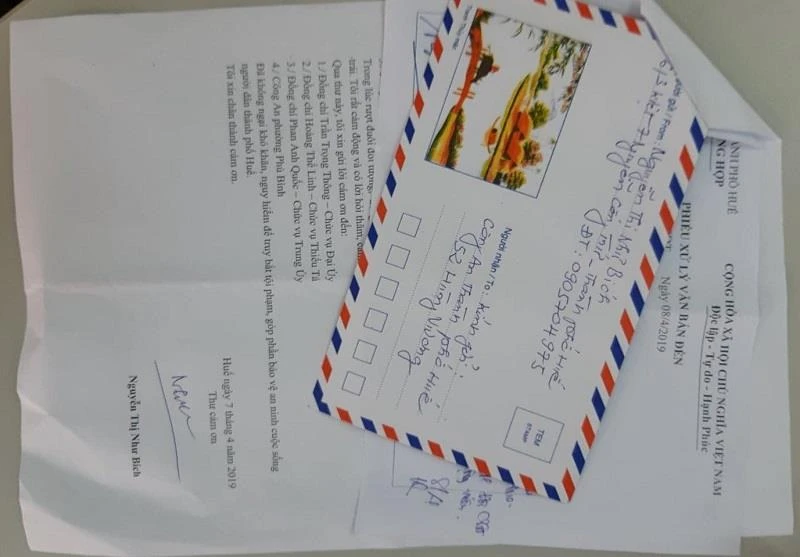 ANH PHỐ HUẾ
NG HỢP
CỘNG HÒA XÃ HỘI CHỦ NGHĨA VIỆT NAM
Độc lập - Tự do - Hạnh Phúc
PHIẾU XỬ LÝ VĂN BẢN ĐẾN
Ngày 08/4/2019
Nguyễn Thị Như Bích
thành phố Huế
TEM
STAMP
Người nhận/To: Kính gửi:
Công An Thành phố Huế
52 Hùng Vương
8/4
Trong lúc rượt đuổi đối tượng,
trái. Tôi rất cảm động và có lời hỏi thăm,
Qua thư này, tôi xin gửi lời cảm ơn đến:
1/ Đồng chí Trần Trọng Thông – Chức vụ Đại Úy
2/ Đồng chí Hoàng Thế Linh – Chức vụ Thiếu Tá
3/ Đồng chí Phan Anh Quốc – Chức vụ Trung Úy
4/ Công An phường Phú Bình
Đã không ngại khó khăn, nguy hiểm để truy bắt tội phạm, góp phần bảo vệ an ninh cuộc sống
người dân thành phố Huế.
Tôi xin chân thành cảm ơn.
Huế ngày 7 tháng 4 năm 2019
Thư cảm ơn
Nguyễn Thị Như Bích